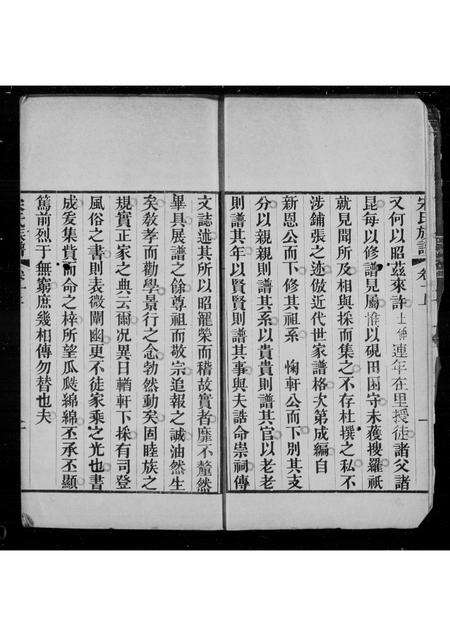 宋氏族譜 卷一上 一
又何以昭茲來許士倫連年在里授徒諸父諸
昆每以修譜見屬惟以硯田困守未獲搜羅祇
就見聞所及相與採而集之不存杜撰之私不
涉鋪張之迹倣近代世家譜格次第成編自
新恩公而下修其祖系 惸軒公而下別其支
分以親親則譜其系以貴貴則譜其官以老老
則譜其年以賢賢則譜其事與夫誥命崇祠傳
文誌述其所以昭寵榮而稽故實者靡不釐然
畢具展譜之餘尊祖而敬宗追報之誠油然生
矣敎孝而勸學景行之念勃然動矣固睦族之
規實正家之典云爾况異日輶軒下採有司登
風俗之書則表微闡幽更不徒家乘之光也書
成爰集貲而命之梓所望瓜瓞綿綿丕承丕顯
篤前烈于無窮庶幾相傳勿替也夫